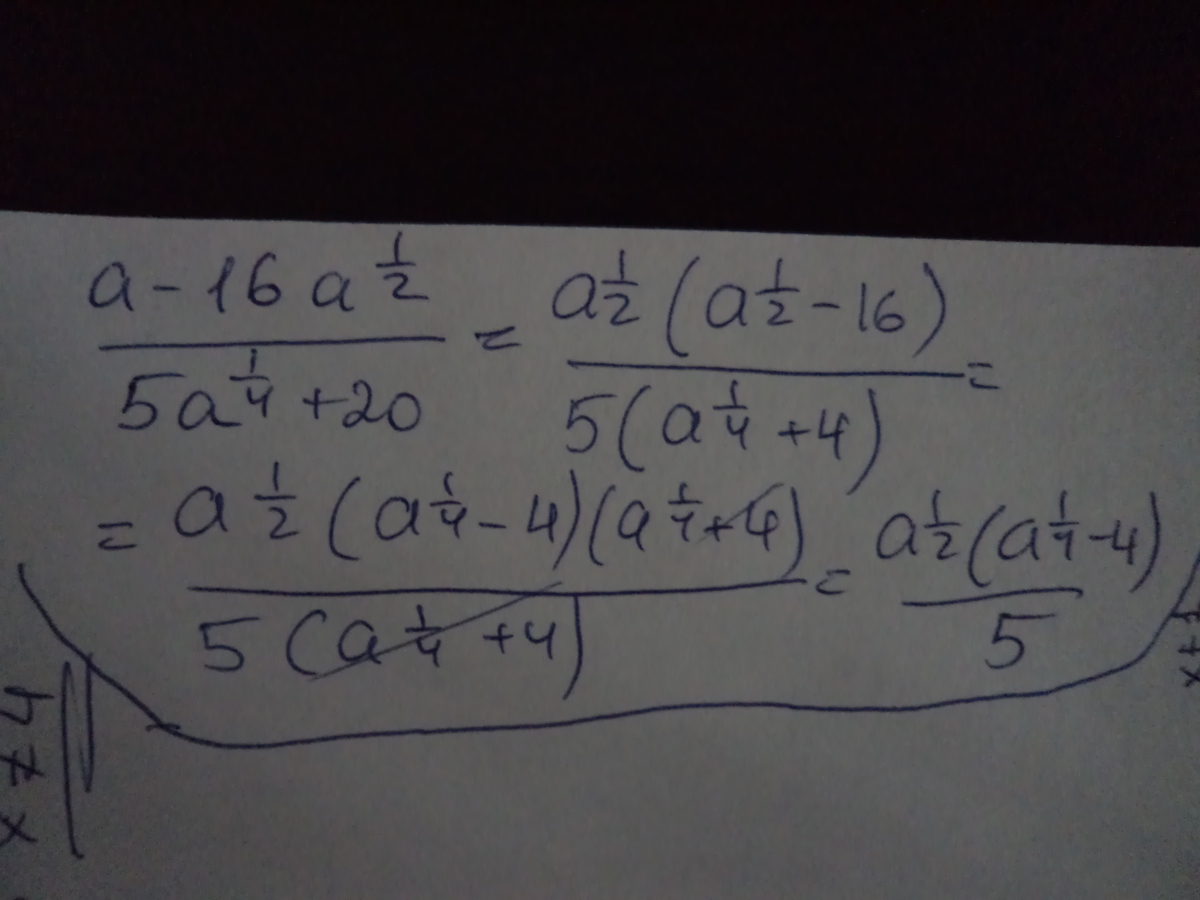 (a - 16a^(1/2)) / (5a^(1/4) + 20) = (a^(1/2) (a^(1/2) - 16)) / (5(a^(1/4) + 4)) =
= (a^(1/2) (a^(1/4) - 4)(a^(1/4) + 4)) / (5(a^(1/4) + 4)) = (a^(1/2) (a^(1/4) - 4)) / 5
x ≠ 4